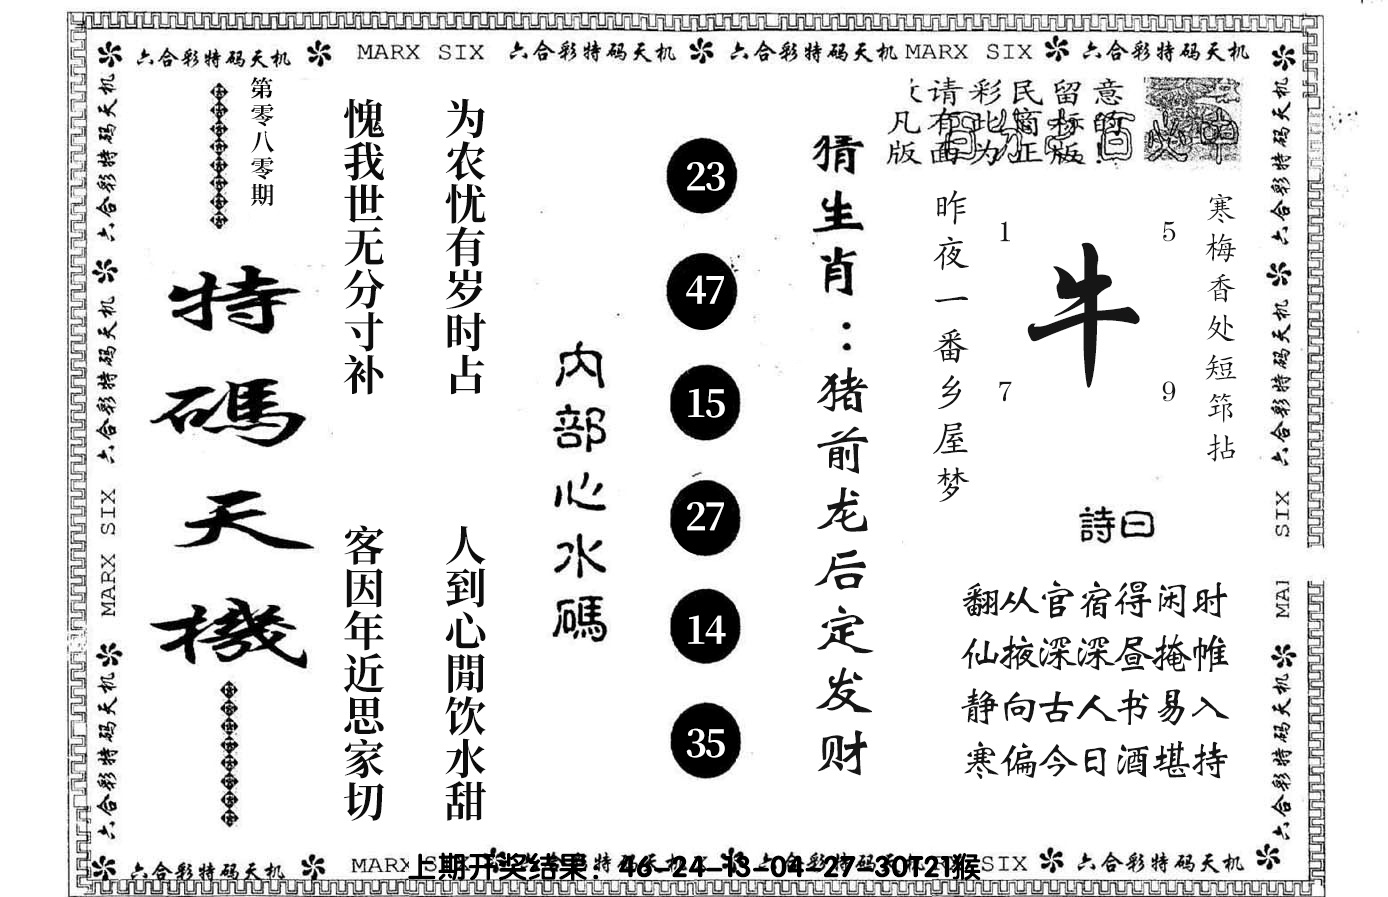 六合彩特码天机 MARX SIX 六合彩特码天机 六合彩特码天机 MARX SIX 六合彩特码天机
六合彩特码天机
六合彩特码天机
MARX SIX
六合彩特码天机
第零八零期
特碼天機
愧我世无分寸补
客因年近思家切
为农忧有岁时占
人到心閒饮水甜
内部心水碼
23
47
15
27
14
35
猜生肖：猪前龙后定发财
请彩民留意
凡有此商标的
版面为正版!
昨夜一番乡屋梦
1
5
牛
7
9
寒梅香处短筇拈
詩曰
翻从官宿得闲时
仙掖深深昼掩帷
静向古人书易入
寒偏今日酒堪持
六合彩特码天机
六合彩特码天机
SIX
MAI
六合彩特码天机
六合彩特码天机 MARX
上期开奖结果：46-24-13-04-27-30T21猴
SIX 六合彩特码天机